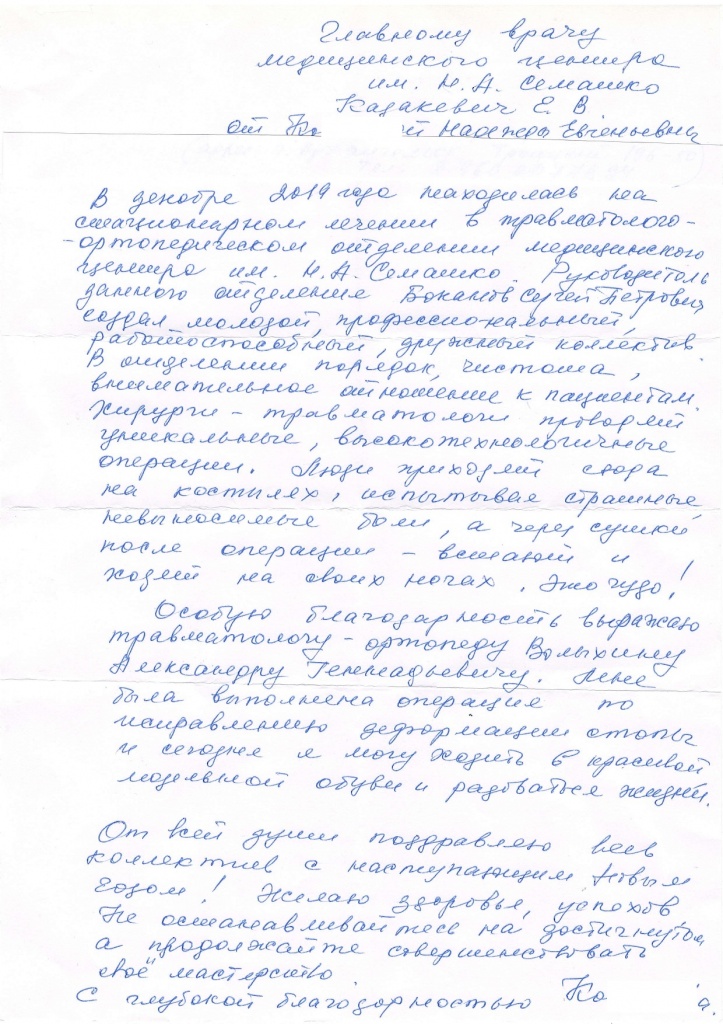 Главному врачу
медицинского центра
им. Н. А. Семашко
Казакевич Е. В
от Ко й Надежды Евгеньевны
В декабре 2019 года находилась на
стационарном лечении в травматолого-
-ортопедическом отделении медицинского
центра им. Н. А. Семашко Руководитель
данного отделения Боканов Сергей Петрович
создал молодой, профессиональный,
работоспособный, дружный коллектив.
В отделении порядок, чистота,
внимательное отношение к пациентам.
Хирурги - травматологи проводят
уникальные, высокотехнологичные
операции. Люди приходят сюда
на костылях, испытывая страшные,
невыносимые боли, а через сутки
после операции - встают и
ходят на своих ногах. Это чудо!
Особую благодарность выражаю
травматологу - ортопеду Волыхину
Александру Геннадьевичу. Мне
была выполнена операция по
исправлению деформации стопы
и сегодня я могу ходить в красивой
модельной обуви и радоваться жизни.
От всей души поздравляю весь
коллектив с наступающим Новым
годом! Желаю здоровья, успехов
Не останавливайтесь на достигнутом
а продолжайте совершенствовать
своё мастерство.
С глубокой благодарностью Ко а.